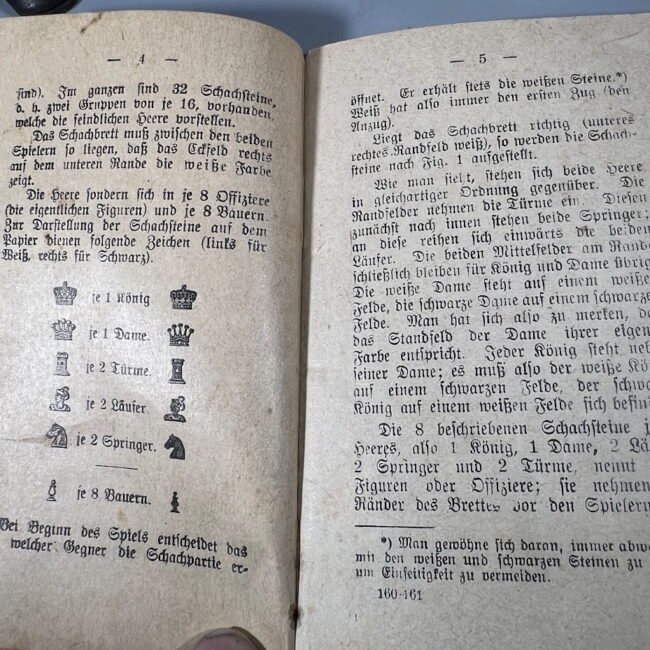 — 4 —
sind). Im ganzen sind 32 Schachsteine,
d. h. zwei Gruppen von je 16, vorhanden,
welche die feindlichen Heere vorstellen.
Das Schachbrett muß zwischen den beiden
Spielern so liegen, daß das Eckfeld rechts
auf dem unteren Rande die weiße Farbe
zeigt.
Die Heere sondern sich in je 8 Offiziere
(die eigentlichen Figuren) und je 8 Bauern.
Zur Darstellung der Schachsteine auf dem
Papier dienen folgende Zeichen (links für
Weiß, rechts für Schwarz).
je 1 König.
je 1 Dame.
je 2 Türme.
je 2 Läufer
je 2 Springer.
je 8 Bauern.
Bei Beginn des Spiels entscheidet das
welcher Gegner die Schachpartie er-
— 5 —
öffnet. Er erhält stets die weißen Steine.*)
Weiß hat also immer den ersten Zug (den
Anzug).
Liegt das Schachbrett richtig (unteres
rechtes Randfeld weiß), so werden die Schach-
steine nach Fig. 1 aufgestellt.
Wie man sieht, stehen sich beide Heere
in gleichartiger Ordnung gegenüber. Die
Randfelder nehmen die Türme ein. Diesen
zunächst nach innen stehen beide Springer;
an diese reihen sich einwärts die beiden
Läufer. Die beiden Mittelfelder am Rande
schließlich bleiben für König und Dame übrig
Die weiße Dame steht auf einem weiße
Felde, die schwarze Dame auf einem schwarze
Felde. Man hat sich also zu merken, da
das Standfeld der Dame ihrer eigen
Farbe entspricht. Jeder König steht neb
seiner Dame; es muß also der weiße Kö
auf einem schwarzen Felde, der schwa
König auf einem weißen Felde sich befin
Die 8 beschriebenen Schachsteine j
Heeres, also 1 König, 1 Dame, 2 Lä
2 Springer und 2 Türme, nennt
Figuren oder Offiziere; sie nehmen
Ränder des Brettes vor den Spielern
*) Man gewöhne sich daran, immer abw
mit den weißen und schwarzen Steinen zu
um Einseitigkeit zu vermeiden.
160-161